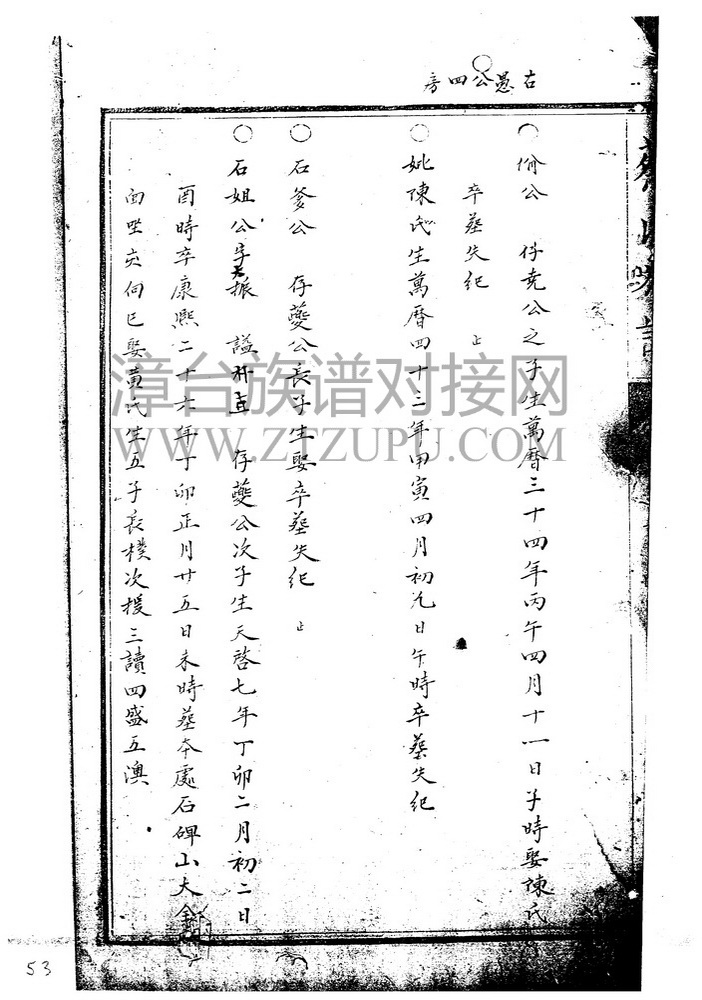 右愚公四房
公 存堯公之子生萬曆三十四年丙午四月十一日子時娶陳氏
卒墓失紀 止
妣陳氏生萬曆四十二年甲寅四月初九日午時卒墓失紀
石爹公 存夔公長子生娶卒墓失紀 止
石姐公字大振 謚 直 存夔公次子生天啓七年丁卯二月初二日
酉時卒康熙二十六年丁卯正月廿五日未時墓本處石碑山大
面坐亥向巳娶黃氏生五子長樸次援三讀四盛五澳
漳台族谱对接网
WWW.ZTZUPU.COM
53